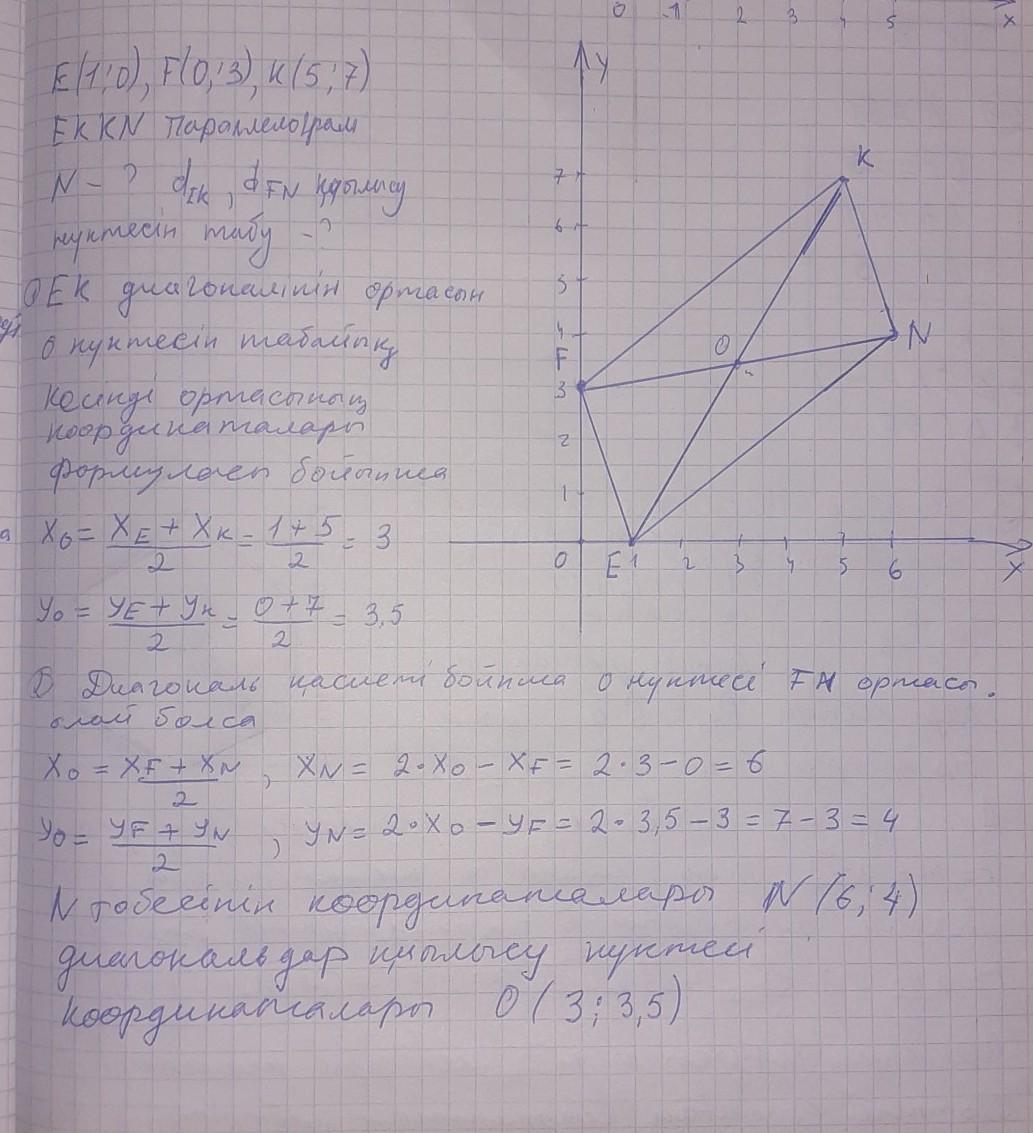 0 1 2 3 4 5 x
E(1;0), F(0;3), K(5;7)
EKKN параллелограм
N - ? dEK, dFN қиылысу
нүктесін табу -?
EK диагоналінің ортасын
O нүктесін табайық
Кесінді ортасының
координаталары
формуласы бойынша
X₀ = (X_E + X_K)/2 = (1 + 5)/2 = 3
y₀ = (y_E + y_K)/2 = (0 + 7)/2 = 3,5
y
K
7
6
5
4
N
O
F
3
2
1
0 E 1 2 3 4 5 6 X
Диагональ қасиеті бойынша O нүктесі FN ортасы.
олай болса
X₀ = (X_F + X_N)/2 , X_N = 2·X₀ - X_F = 2·3 - 0 = 6
y₀ = (y_F + y_N)/2 , y_N = 2·X₀ - y_F = 2·3,5 - 3 = 7 - 3 = 4
N төбесінің координаталары N (6; 4)
диагональдар қиылысу нүктесі
координаталары O (3; 3,5)